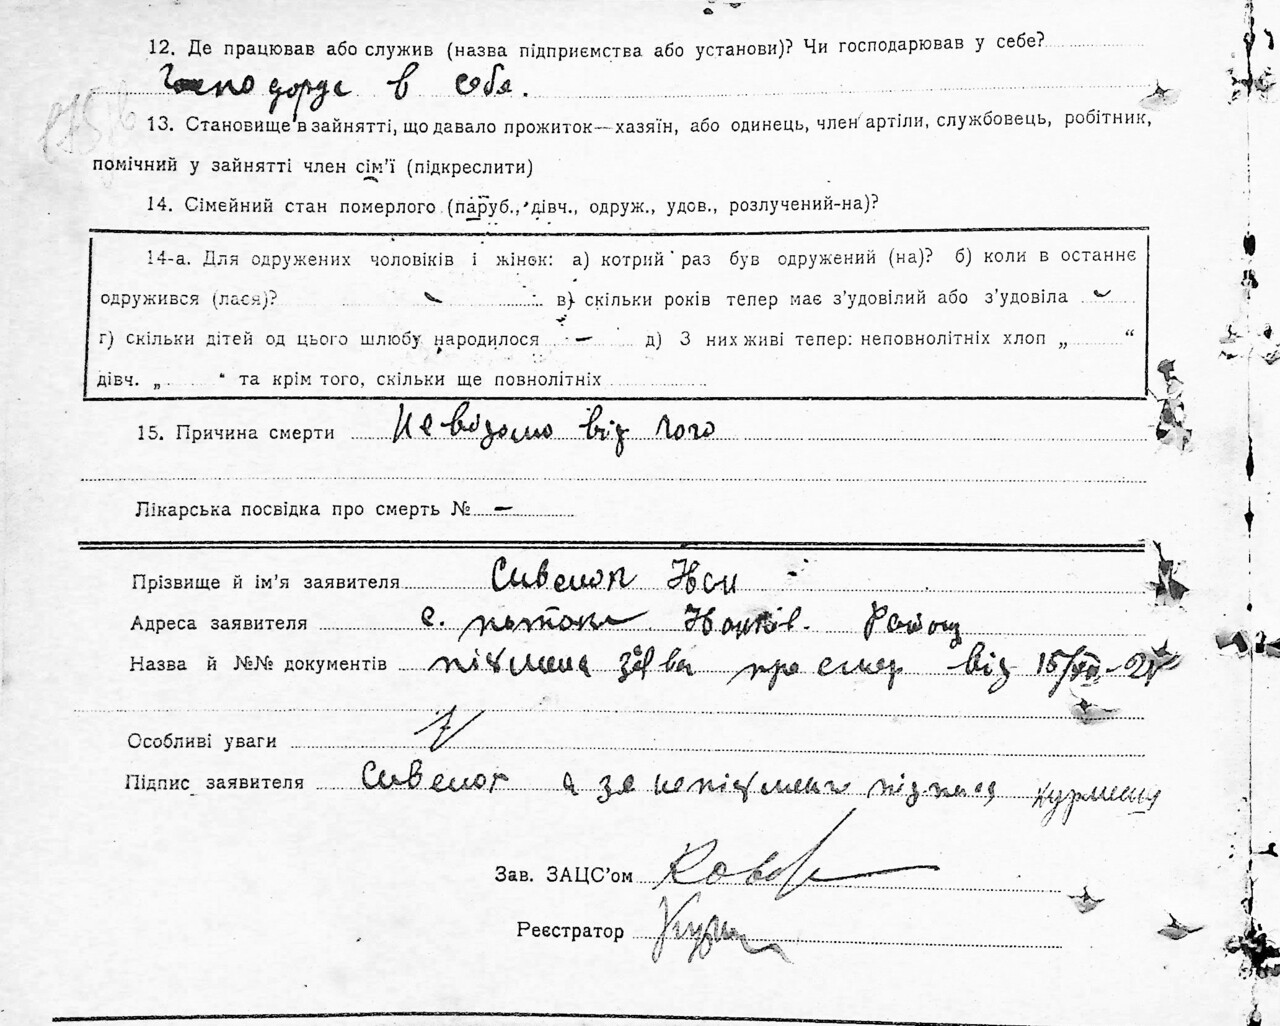 12. Де працював або служив (назва підприємства або установи)? Чи господарював у себе?
в себе.
13. Становище в зайнятті, що давало прожиток—хазяїн, або одинець, член артіли, службовець, робітник,
помічний у зайнятті член сім'ї (підкреслити)
14. Сімейний стан померлого (паруб., дівч., одруж., удов., розлучений-на)?
14-а. Для одружених чоловіків і жінок: а) котрий раз був одружений (на)? б) коли в останнє
одружився (лася)? в) скільки років тепер має з'удовілий або з'удовіла
г) скільки дітей од цього шлюбу народилося — д) З них живі тепер: неповнолітніх хлоп „ “
дівч. „ “ та крім того, скільки ще повнолітніх
15. Причина смерти Невідомо від чого
Лікарська посвідка про смерть № —
Прізвище й ім'я заявителя
Адреса заявителя с. Район
Назва й №№ документів заява про смер від 15/
Особливі уваги
Підпис заявителя а за
Зав. ЗАЦС'ом
Реєстратор